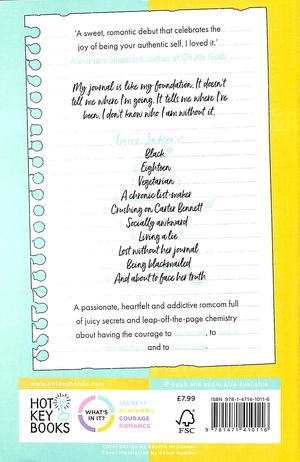 'A sweet, romantic debut that celebrates the
joy of being your authentic self. I loved it.'
Alexandra Sheppard, author of Oh My Gods
My journal is like my foundation. It doesn't
tell me where I'm going. It tells me where I've
been. I don't know who I am without it.
Quinn Jackson is
Black
Eighteen
Vegetarian
A chronic list-maker
Crushing on Carter Bennett
Socially awkward
Living a lie
Lost without her journal
Being blackmailed
And about to face her truth
A passionate, heartfelt and addictive romcom full
of juicy secrets and leap-off-the-page chemistry
about having the courage to
and to
www.hotkeybooks.com
e-book and audio also available
HOT
KEY
BOOKS
WHAT'S
IN IT?
SECRETS
BLACKMAIL
COURAGE
ROMANCE
£7.99
FSC
ISBN 978-1-4714-1011-6
9 781471 410116
Cover design by Sophie McDonnell
Cover illustration by Sarah Madden